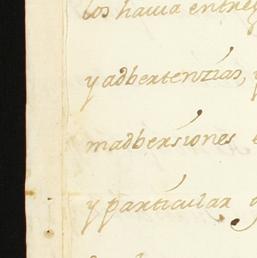 los havia entre
y adbertenzias, y
madbersiones
y particular